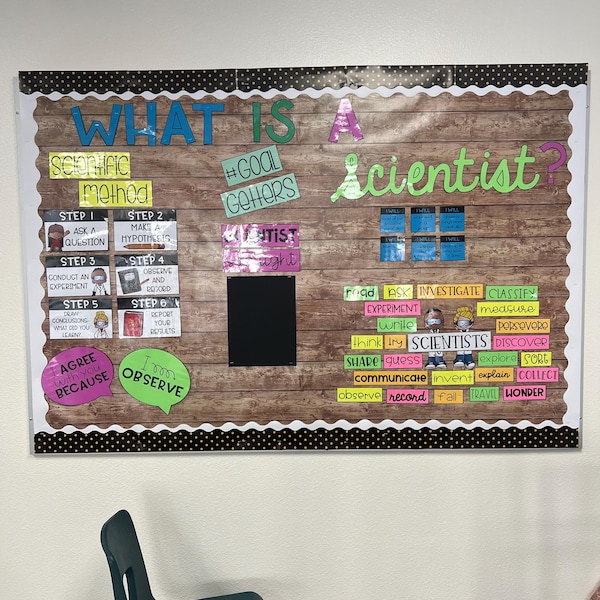 WHAT IS A
Scientist?
SCIENTIFIC
METHOD
STEP 1
ASK A
QUESTION
STEP 2
MAKE A
HYPOTHESIS
STEP 3
CONDUCT AN
EXPERIMENT
STEP 4
OBSERVE
AND
RECORD
STEP 5
DRAW
CONCLUSIONS-
WHAT DID YOU
LEARN?
STEP 6
REPORT
YOUR
RESULTS
I AGREE
with you
BECAUSE
I
OBSERVE
#GOAL
GETTERS
SCIENTIST
I WILL I WILL I WILL
I WILL I WILL I WILL
read ASK INVESTIGATE CLASSIFY
EXPERIMENT measure
write persevere
think try SCIENTISTS DISCOVER
SHARE guess explore SORT
communicate invent explain COLLECT
observe record fail TRAVEL WONDER